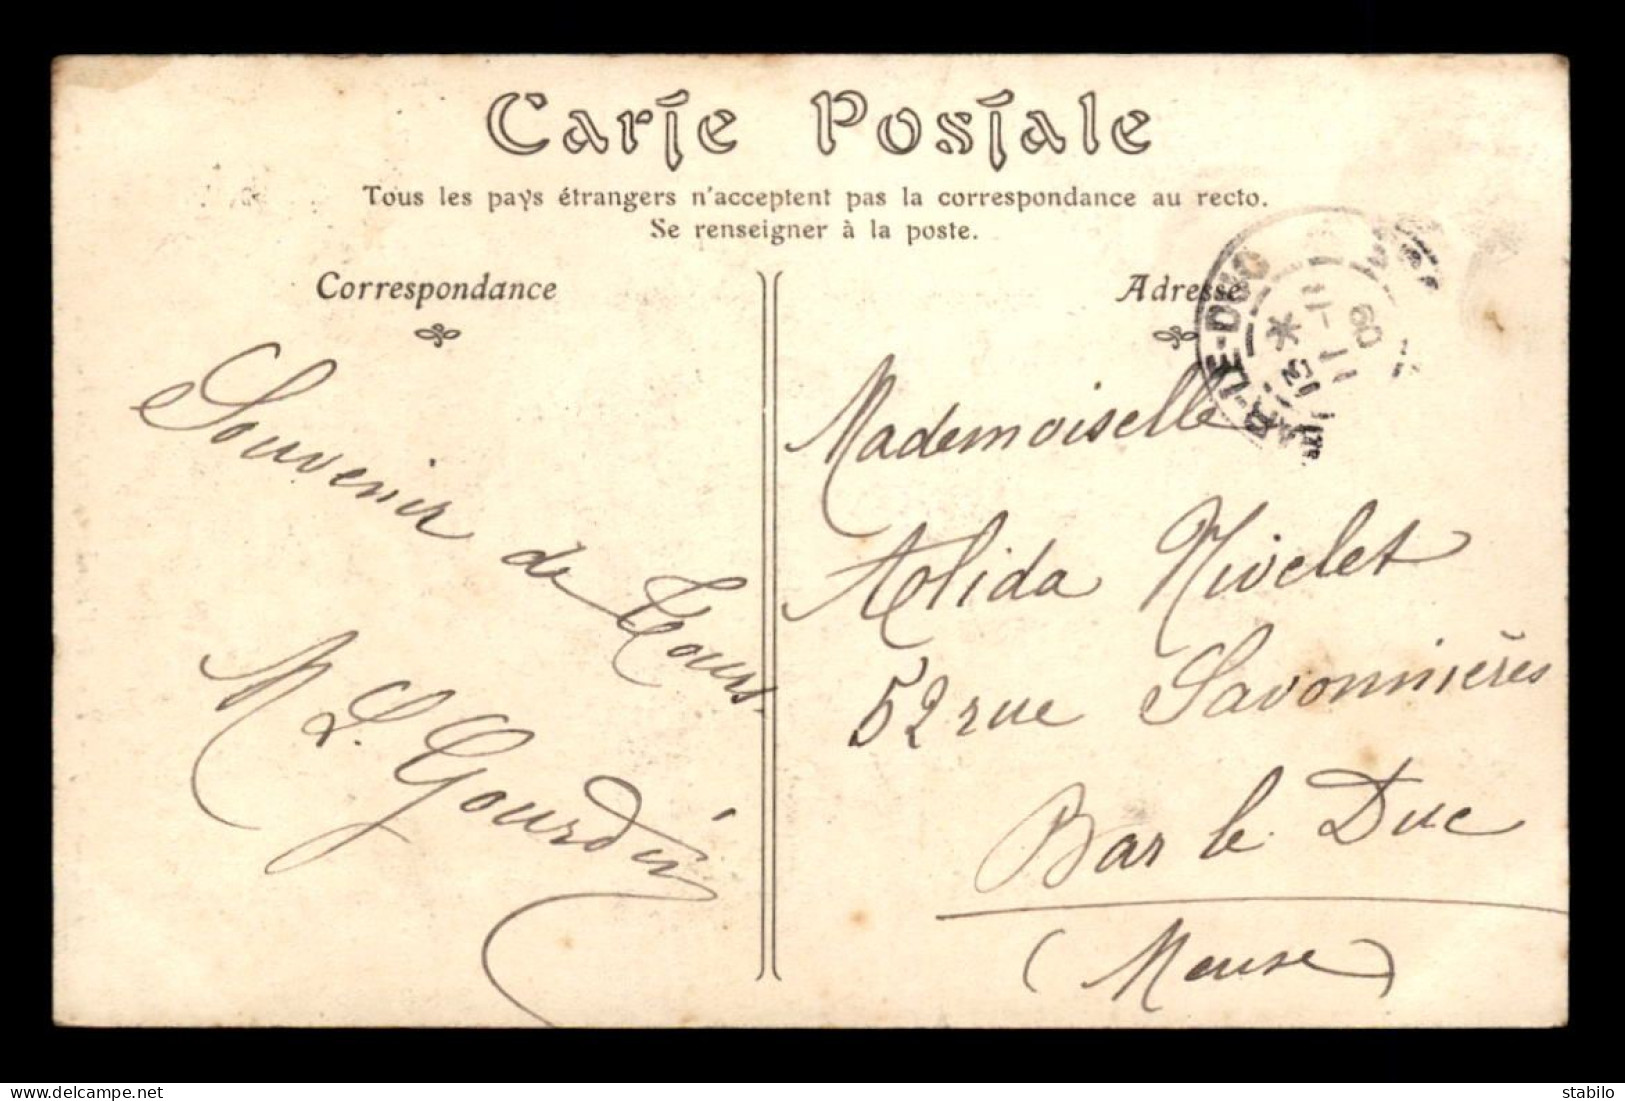 Carte Postale
Tous les pays étrangers n'acceptent pas la correspondance au recto.
Se renseigner à la poste.
Correspondance
Souvenir de Tours.
M L. Gourdin
Adresse
BAR-LE-DUC
Mademoiselle
Alida Nivelet
52 rue Savonnières
Bar le Duc
(Meuse)
delcampe.net
stabilo